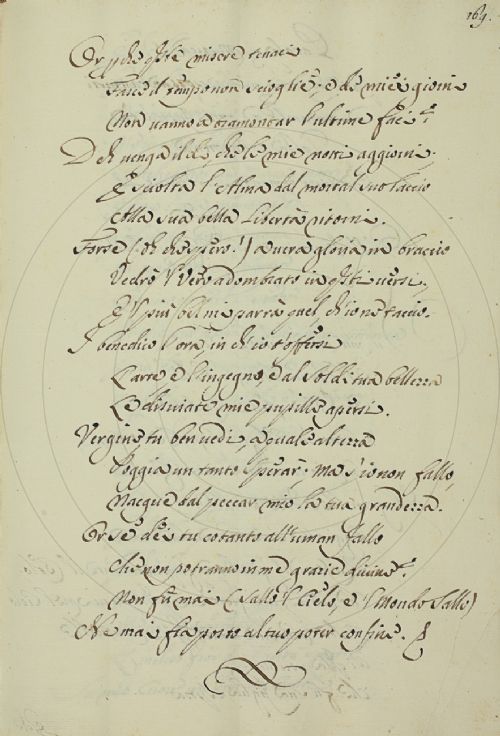 169.
Or p che q.ste misere tenaci
Fasce il tempo non scioglie; e de miei giorni
Non vanno a tramontar l'ultime faci?
Deh venga il dì, che le mie notti aggiorni.
E sciolta l'Alma dal mortal suo laccio
Alla sua bella libertà ritorni.
Forse (oh che spero!) a vera gloria in braccio
Vedrò 'l Vero adombrato in q.sti versi.
E 'l più bel mi parrà quel, ch'io ne taccio.
I benedico l'ora, in ch'io t'offersi
L'arte e l'ingegno, e al Sol di tua bellezza
Le disviate mie pupille apersi.
Vergine tu ben vedi, a quale altezza
Poggia un tanto sperar; ma s'io non fallo,
Nacque dal peccar mio la tua grandezza.
Or se dei tu cotanto all'uman fallo
Che non potranno in me grazie divine?
Non fu mai (sallo 'l Cielo, e 'l Mondo sallo)
Ne mai fia posto al tuo poter confine.